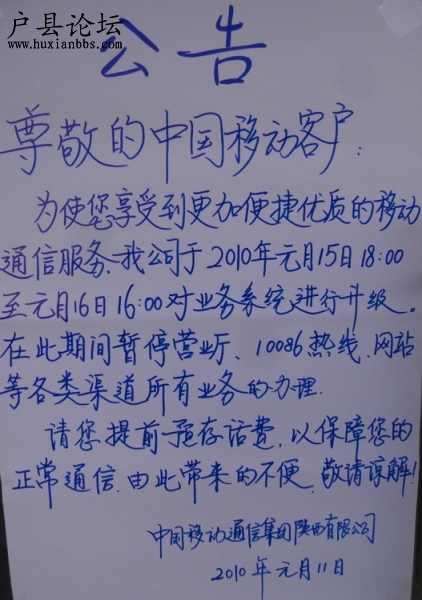 户县论坛
www.huxianbbs.com
公告
尊敬的中国移动客户:
为使您享受到更加便捷优质的移动
通信服务,我公司于2010年元月15日18:00
至元月16日16:00对业务系统进行升级。
在此期间暂停营业厅、10086热线、网站
等各类渠道所有业务的办理.
请您提前预存话费,以保障您的
正常通信.由此带来的不便.敬请谅解!
中国移动通信集团陕西有限公司
2010年元月11日